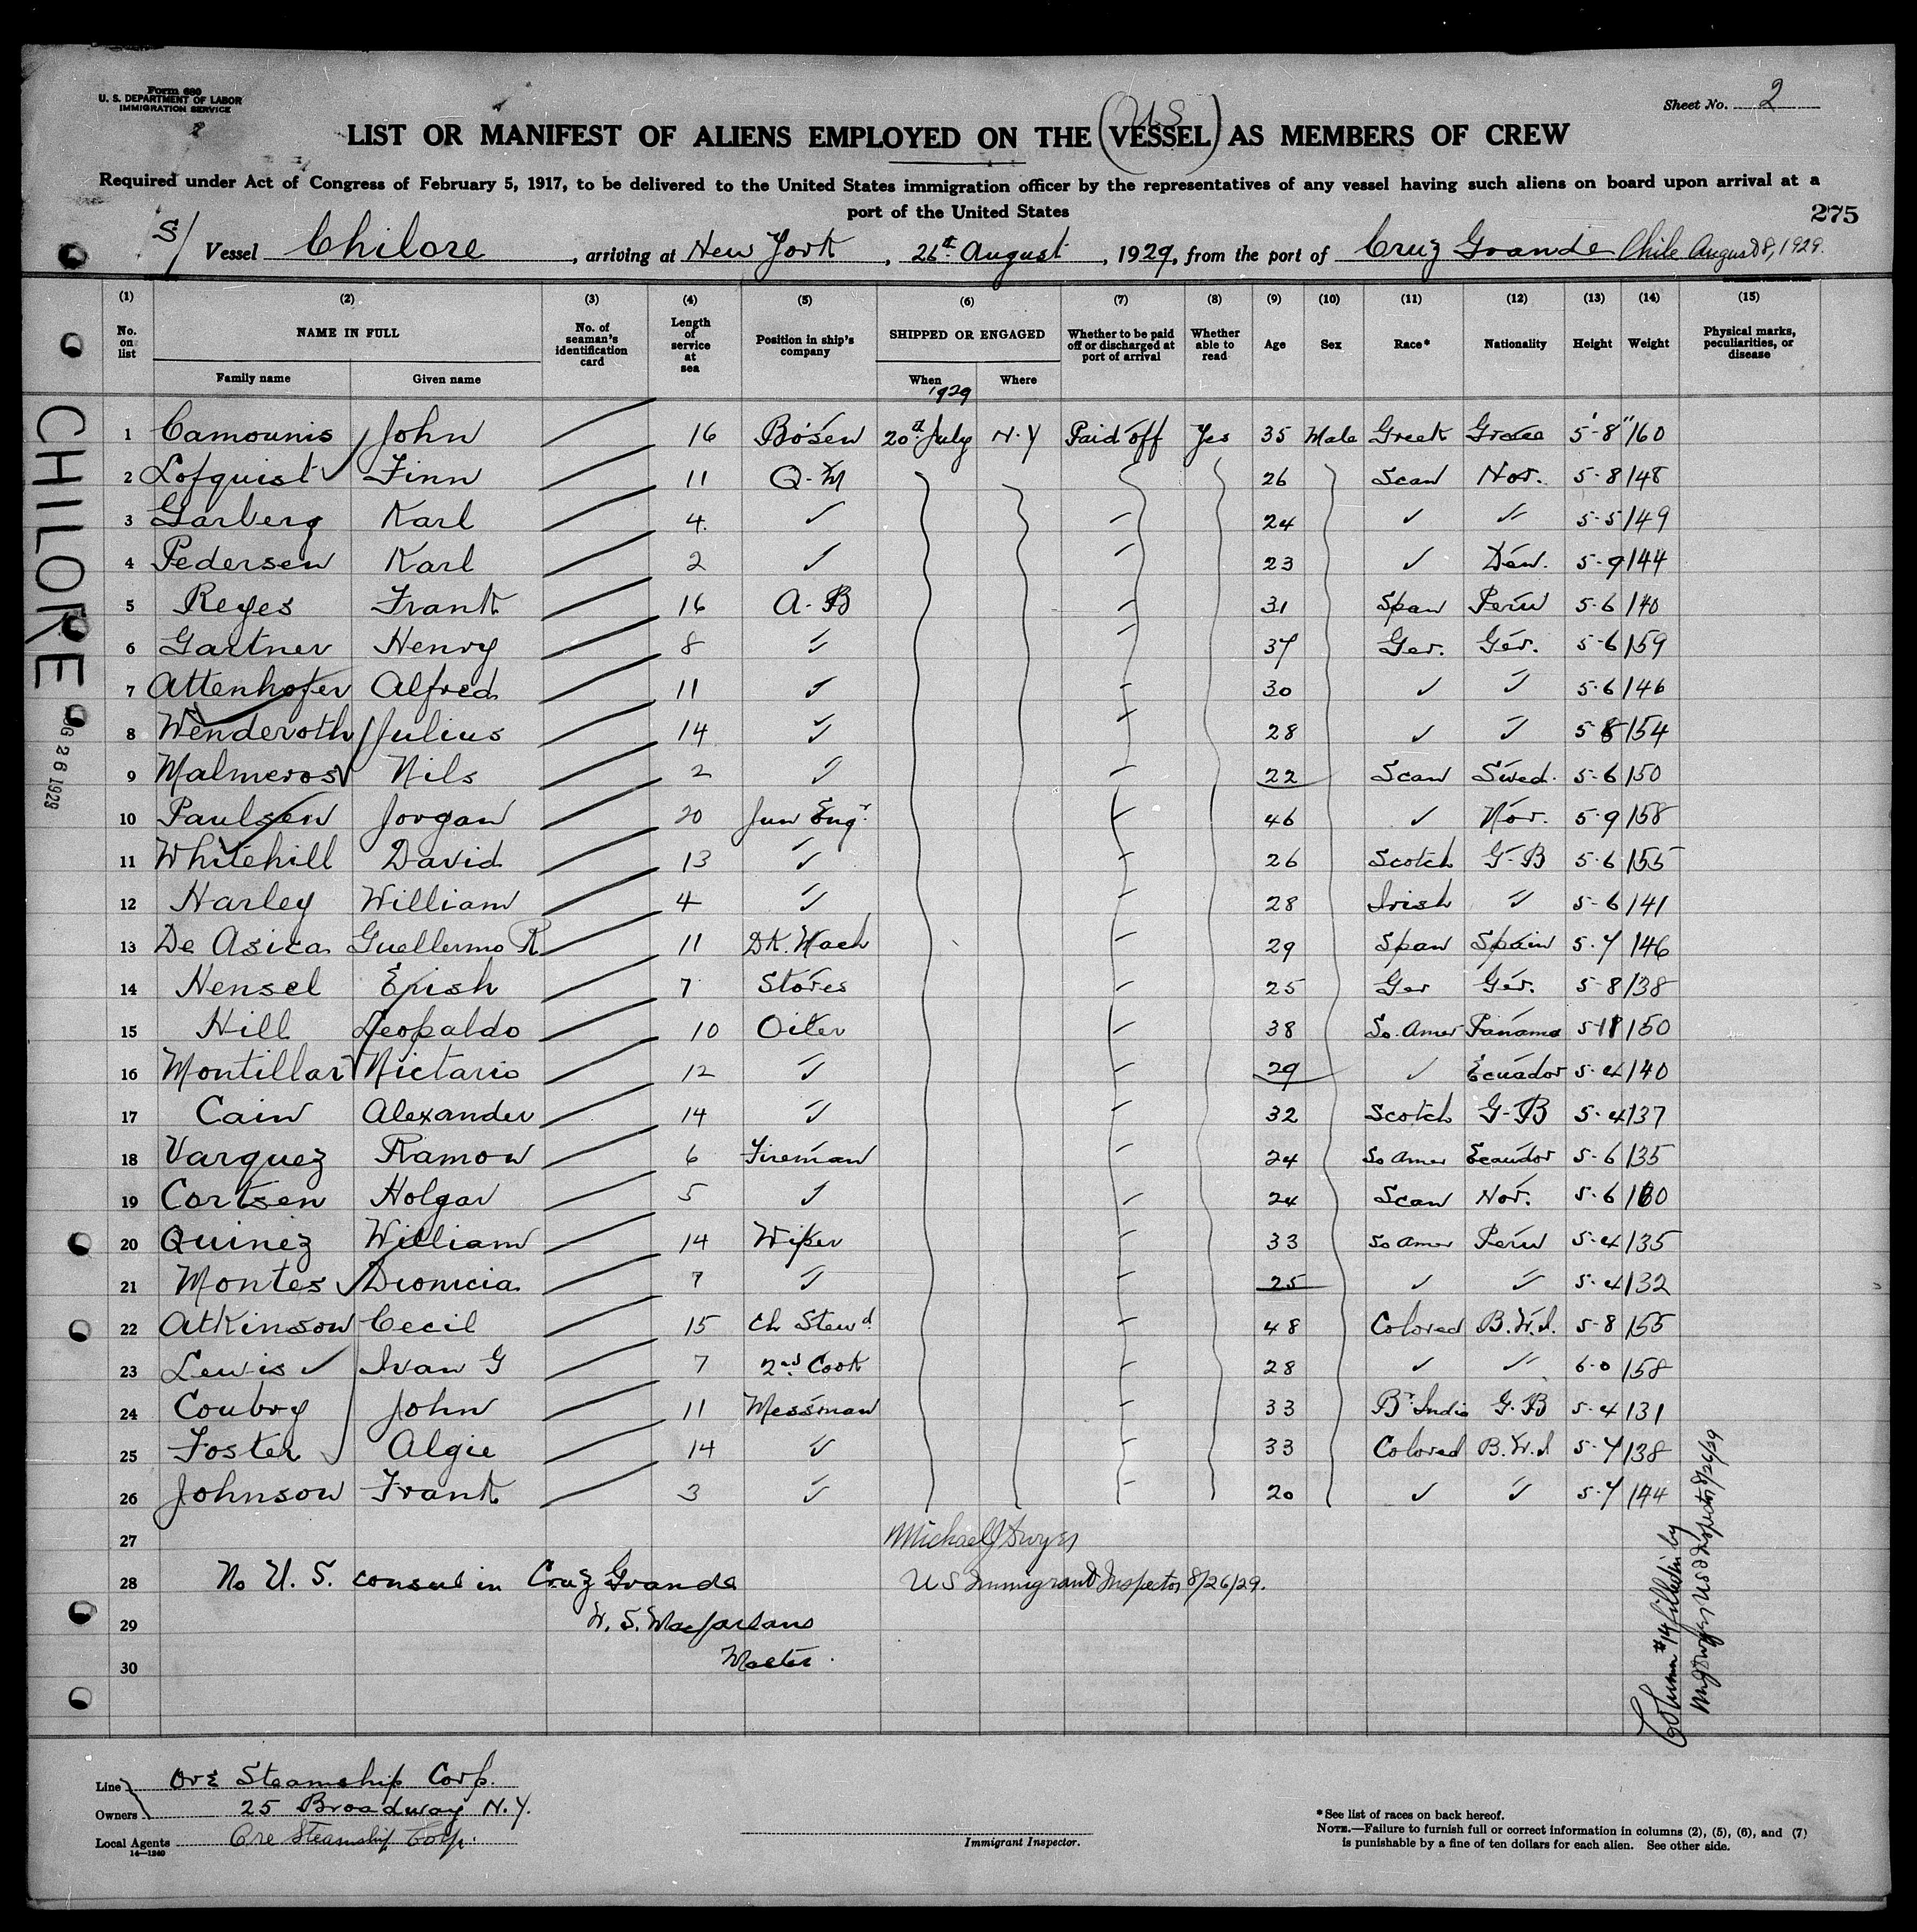 Form 680
U. S. DEPARTMENT OF LABOR
IMMIGRATION SERVICE
Sheet No. 2
(US)
LIST OR MANIFEST OF ALIENS EMPLOYED ON THE VESSEL AS MEMBERS OF CREW
Required under Act of Congress of February 5, 1917, to be delivered to the United States immigration officer by the representatives of any vessel having such aliens on board upon arrival at a
port of the United States
275
S/ Vessel Chilore, arriving at New York, 26th August, 1929, from the port of Cruz Grande Chile August 8, 1929.
(1) (2) (3) (4) (5) (6) (7) (8) (9) (10) (11) (12) (13) (14) (15)
No. on list NAME IN FULL No. of seaman's identification card Length of service at sea Position in ship's company SHIPPED OR ENGAGED Whether to be paid off or discharged at port of arrival Whether able to read Age Sex Race* Nationality Height Weight Physical marks, peculiarities, or disease
Family name Given name When 1929 Where
1 Camounis John 16 Bosen 20th July N.Y Paid off Yes 35 Male Greek Greece 5'-8" 160
2 Lofquist Finn 11 Q-M 26 Scan Nor. 5-8 148
3 Garberg Karl 4 ✓ 24 ✓ " 5-5 149
4 Pedersen Karl 2 ✓ 23 ✓ Den. 5-9 144
5 Reyes Frank 16 A-B 31 Span Peru 5-6 140
6 Gartner Henry 8 " 37 Ger. Ger. 5-6 159
7 Attenhofer Alfred 11 " 30 ✓ " 5-6 146
8 Wenderoth Julius 14 " 28 ✓ " 5 8 154
9 Malmeros Nils 2 " 22 Scan Swed. 5-6 150
10 Paulsen Jorgan 20 Jun Engr. 46 ✓ Nor. 5-9 158
11 Whitehill David 13 " 26 Scotch G-B 5-6 155
12 Harley William 4 " 28 Irish " 5-6 141
13 De Asica Guellermo R 11 DK. Mach 29 Span Spain 5-7 146
14 Hensel Erish 7 Stores 25 Ger Ger. 5-8 138
15 Hill Leopaldo 10 Oiler 38 So. Amer Panama 150
16 Montillar Nictario 12 " 29 ✓ Ecuador 5-4 140
17 Cain Alexander 14 " 32 Scotch G-B 5-4 137
18 Varquez Ramon 6 Fireman 24 So Amer Ecaudor 5-6 135
19 Cortsen Holgar 5 " 24 Scan Nor. 5-6 160
20 Quinez William 14 Wiper 33 So Amer Peru 5-4 135
21 Montes Dionicia 7 " 25 ✓ " 5-4 132
22 Atkinson Cecil 15 Ch Stewd. 48 Colored B.W.I. 5-8 155
23 Lewis Ivan G 7 2nd Cook 28 ✓ " 6-0 158
24 Coubry John 11 Messman 33 Br. India G.B 5-4 131
25 Foster Algie 14 " 33 Colored B.W.I 5-7 138
26 Johnson Frank 3 " 20 ✓ " 5-7 144
27 Michael J Dwyer
28 No U. S. consul in Cruz Grande US Immigrant Inspector 8/26/29.
29 W. S. Macfarlane
30 Master.
Column #14 filled in by
MJ Dwyer US Inspector 8/26/29
CHILORE
UG 26 1929
Line Ore Steamship Corp.
Owners 25 Broadway N.Y.
Local Agents Ore Steamship Corp.
14—1240
Immigrant Inspector.
*See list of races on back hereof.
NOTE.—Failure to furnish full or correct information in columns (2), (5), (6), and (7)
is punishable by a fine of ten dollars for each alien. See other side.